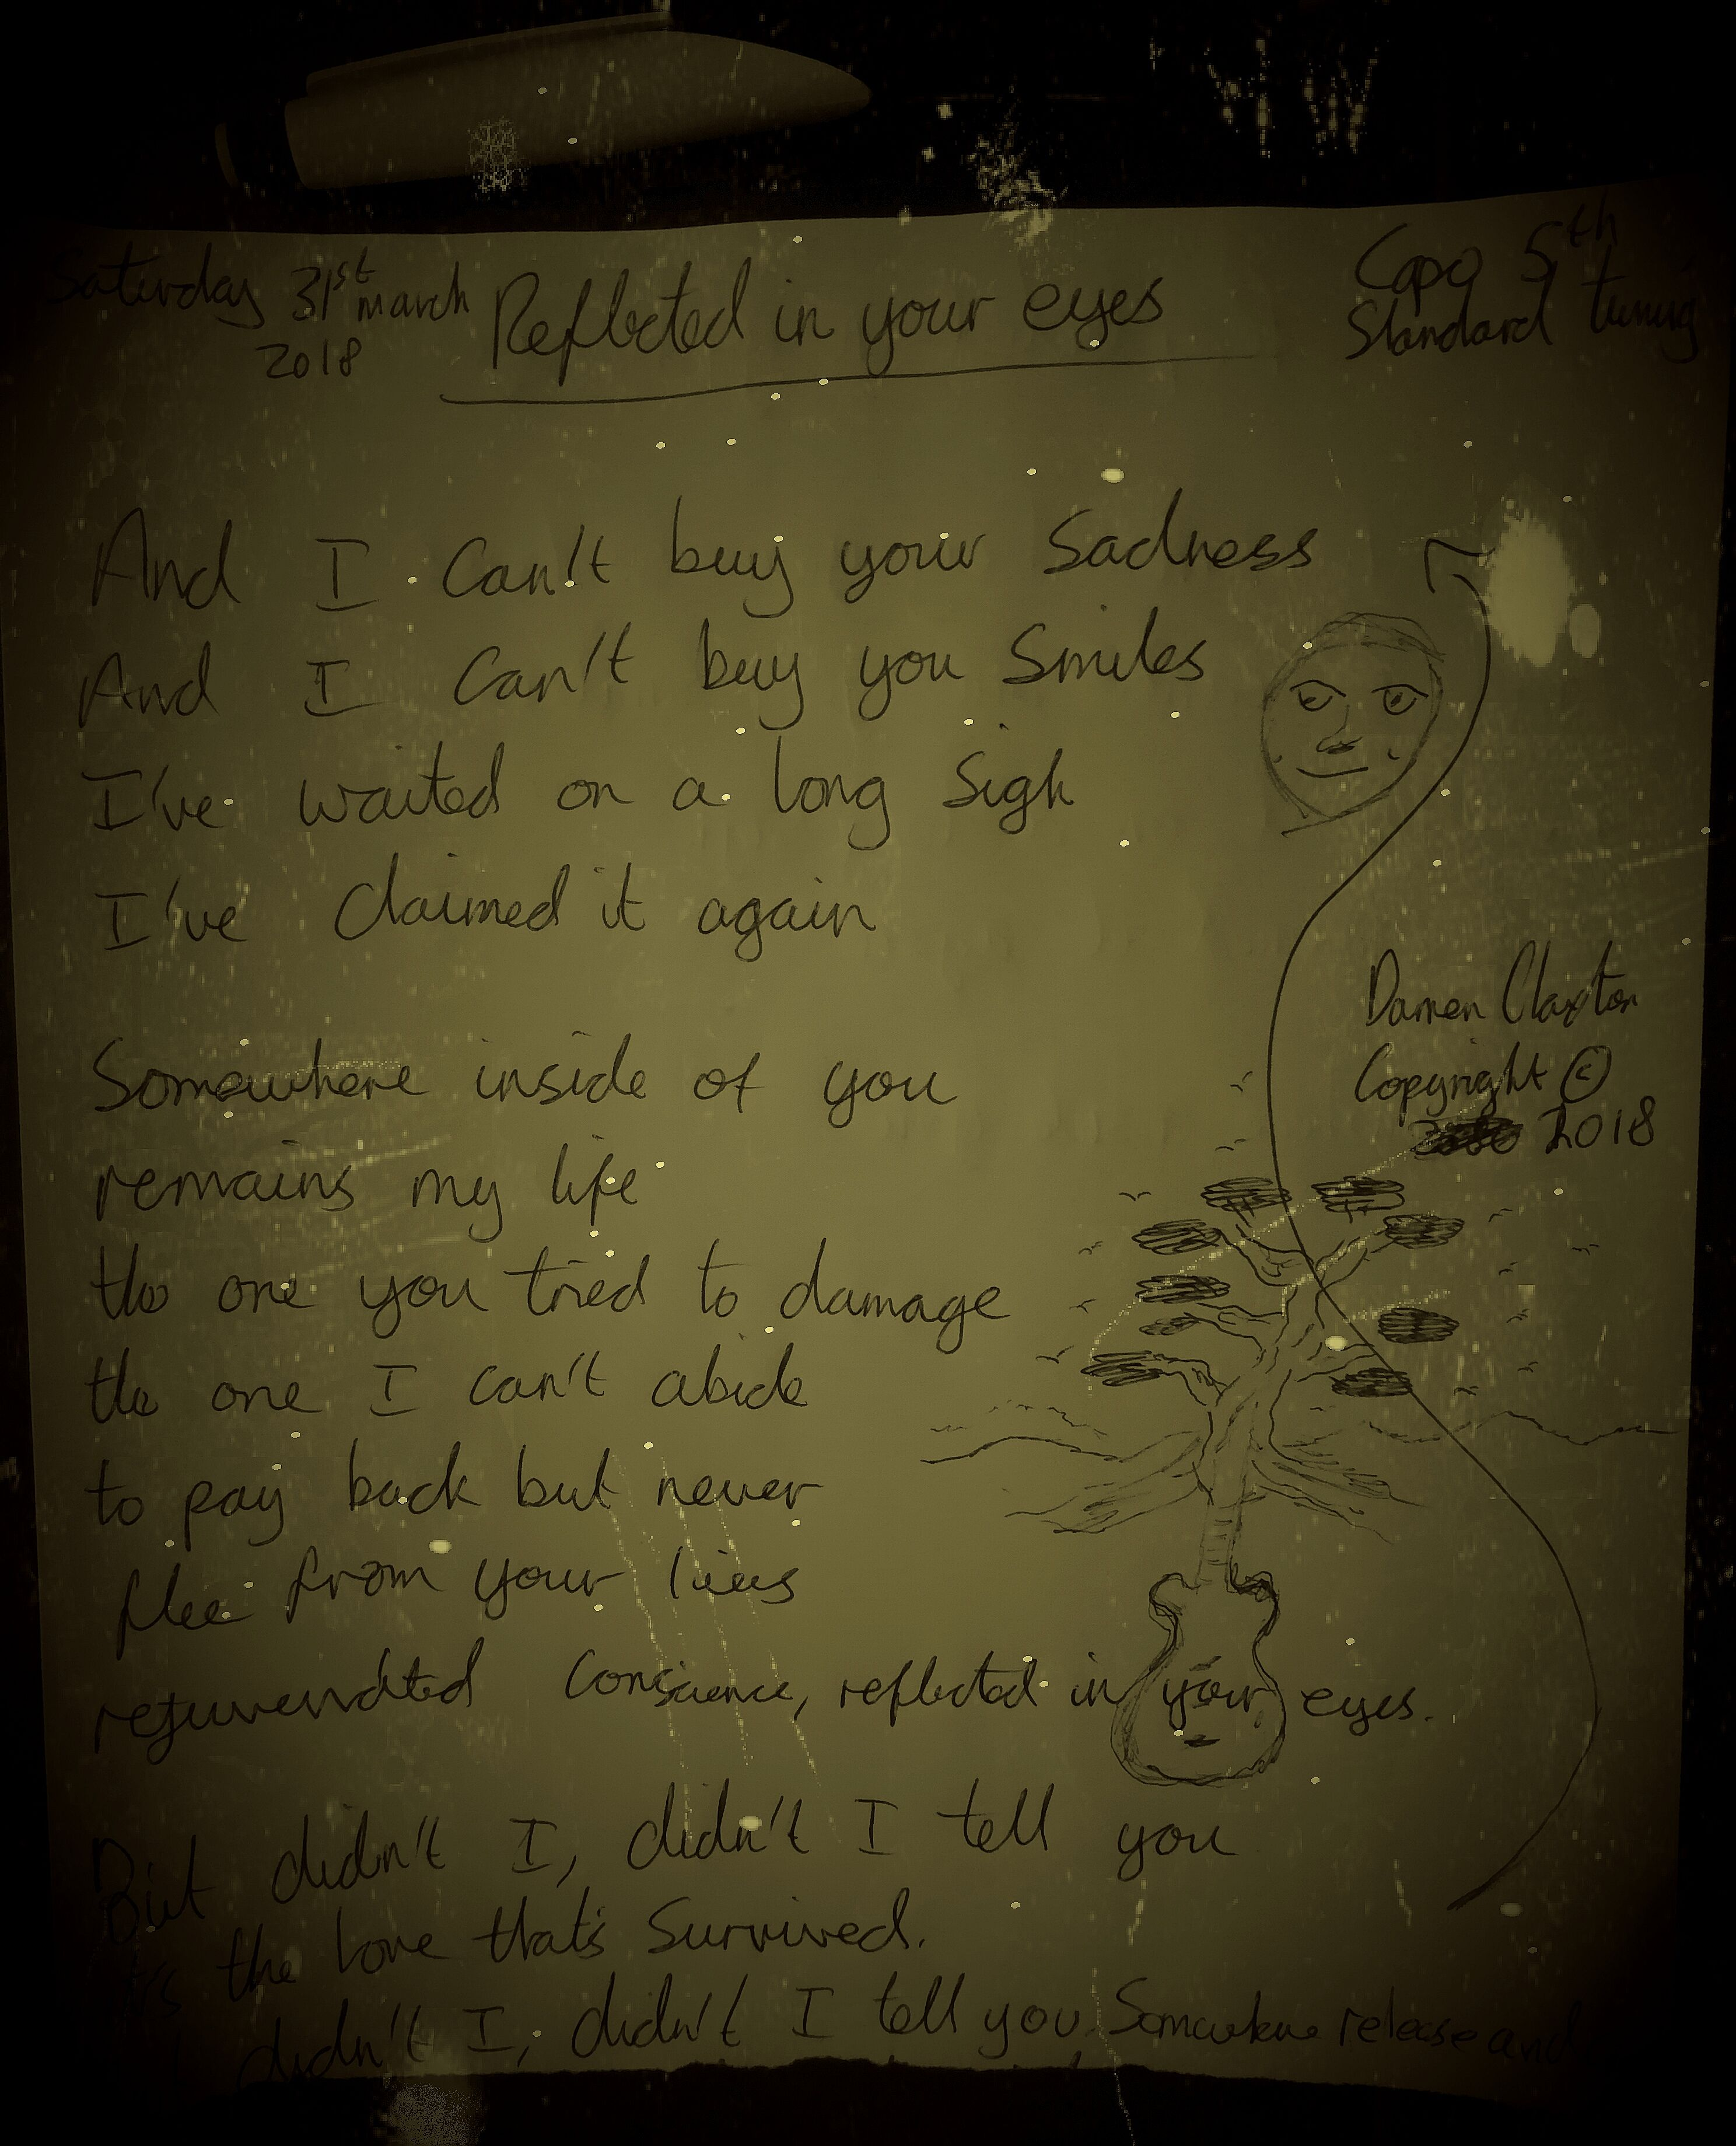 Saturday 31st march
2018
Reflected in your eyes
Capo 5th
Standard tuning
And I Can't buy your Sadness
And I Can't buy you Smiles
I've waited on a long Sigh
I've Claimed it again
Somewhere inside of you
remains my life
the one you tried to damage
the one I can't abide
to pay back but never
flee from your lies
rejuvenated Conscience, reflected in your eyes.
But didn't I, didn't I tell you
it's the love that's Survived.
didn't I, didn't I tell you. Somewhere release and
Darren Claxton
Copyright ©
2018